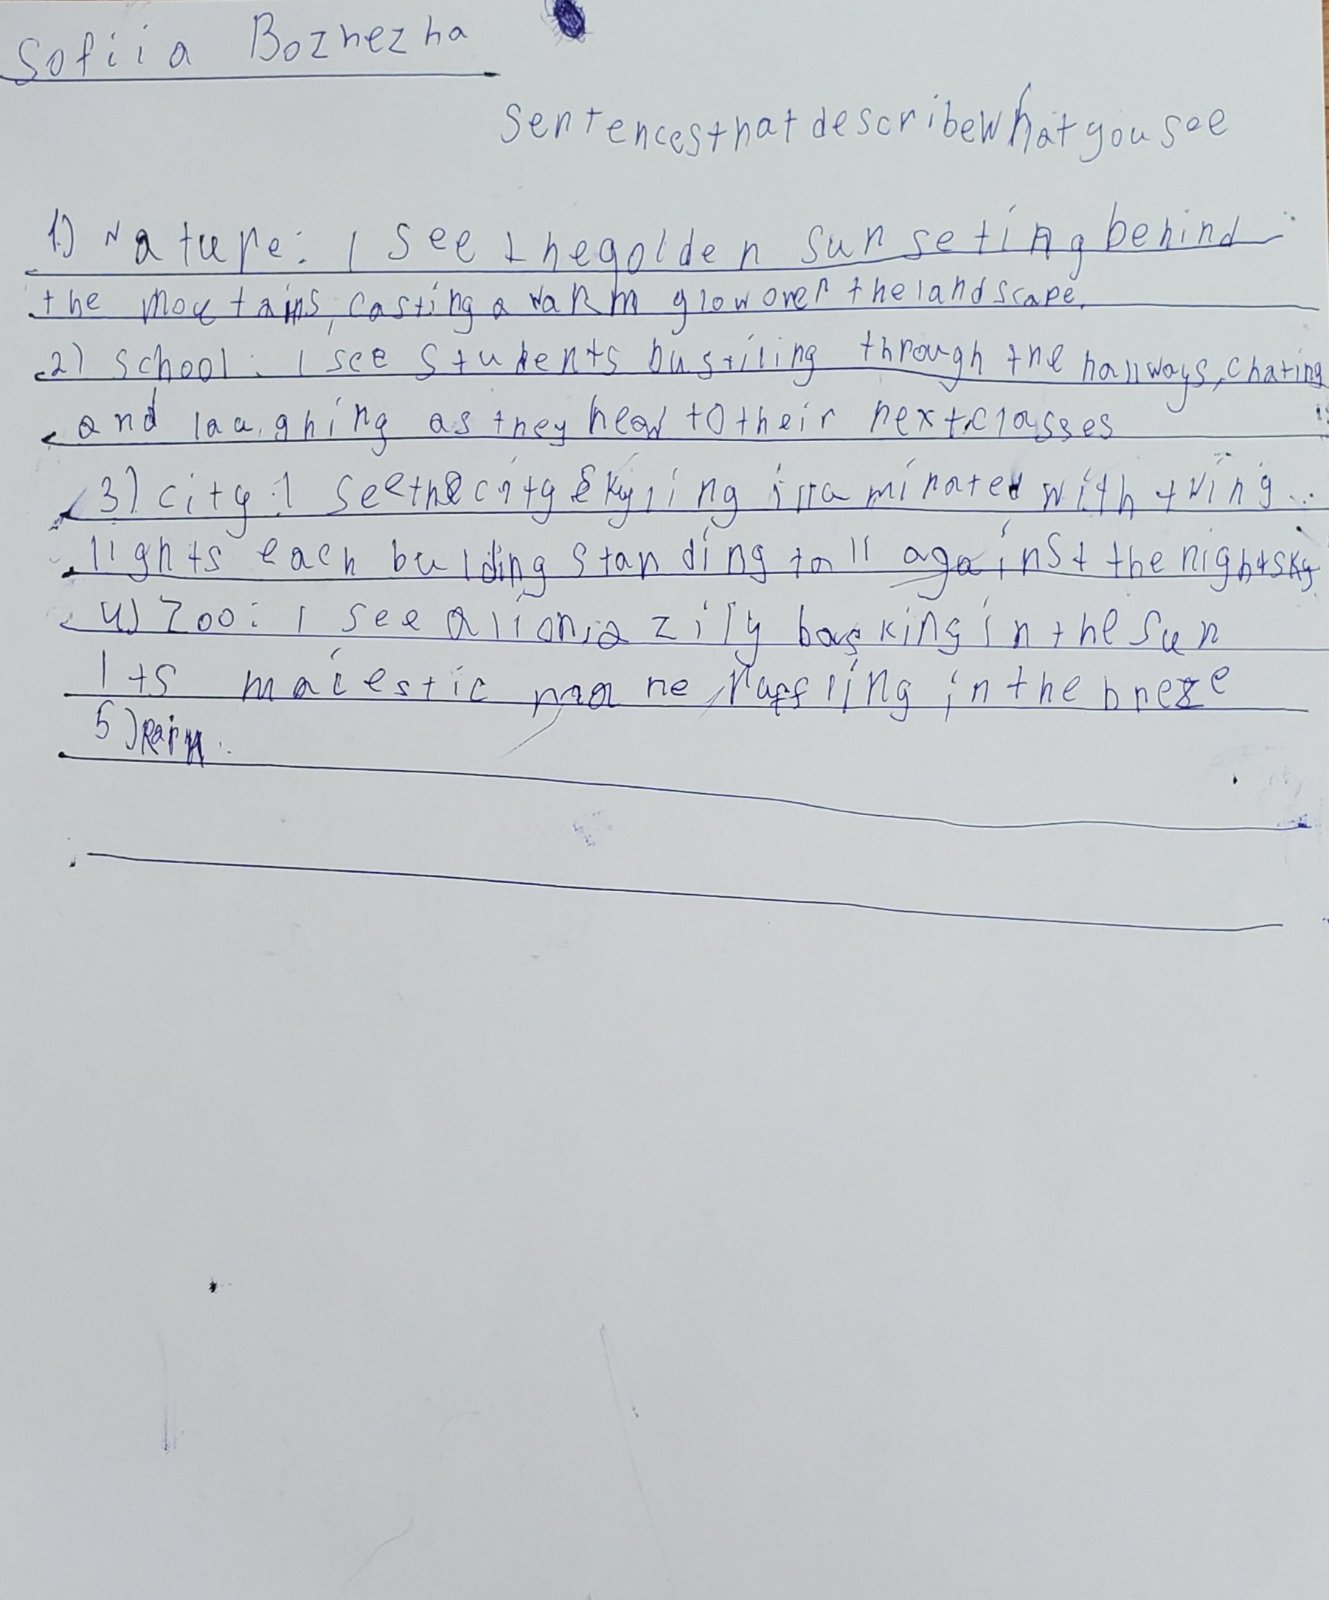 Sofiia Bozhezha
Sentencesthatdescribewhatyousee
1.) Nature: I see thegolden sun seting behind
the moutains, casting a warm glow over the landscape.
2) school: I see students bustiling through the hallways, chating
and laughing as they head to their next classes
3) city: I seethecity skyling with
lights each bulding standing tall against the nightsky
4) Zoo: I see alionla zily basking in the sun
Its maiestic ruffling in the breze
5) Rain